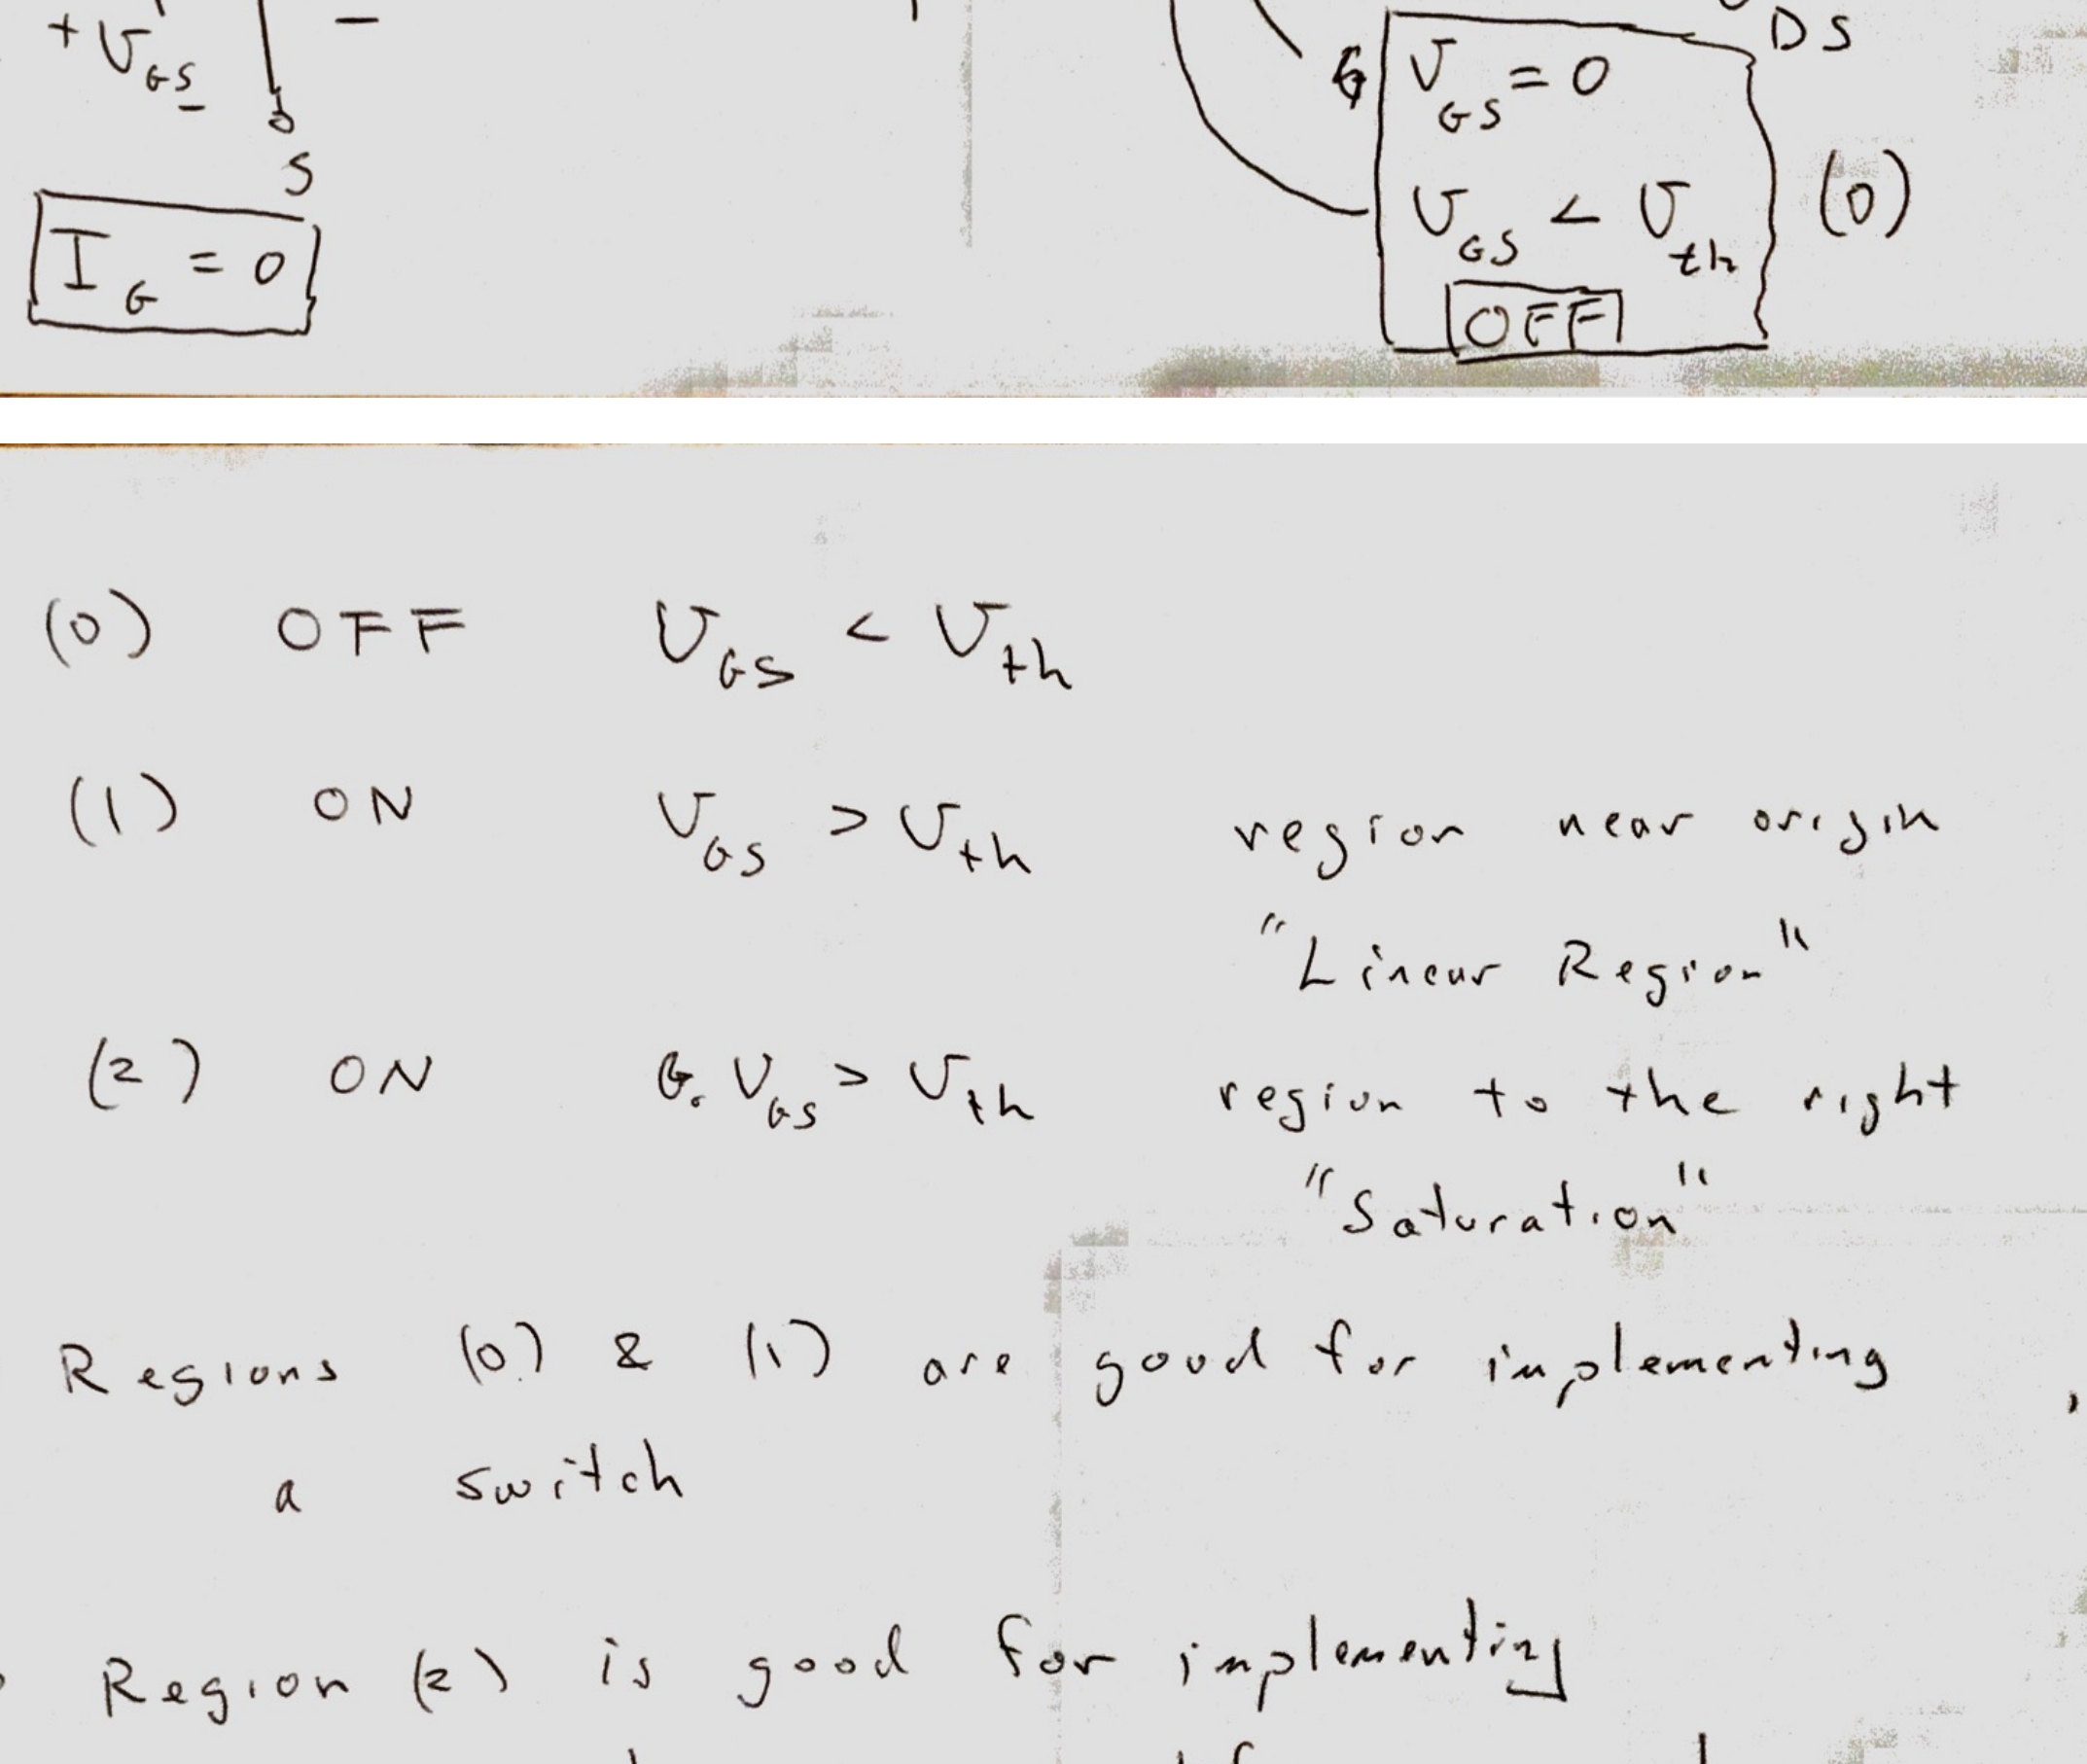 + V_GS -
-
S
I_G = 0
DS
V_GS = 0
V_GS < V_th (0)
OFF
(0) OFF V_GS < V_th
(1) ON V_GS > V_th region near origin
"Linear Region"
(2) ON V_GS > V_th region to the right
"Saturation"
Regions (0) & (1) are good for implementing
a switch
Region (2) is good for implementing